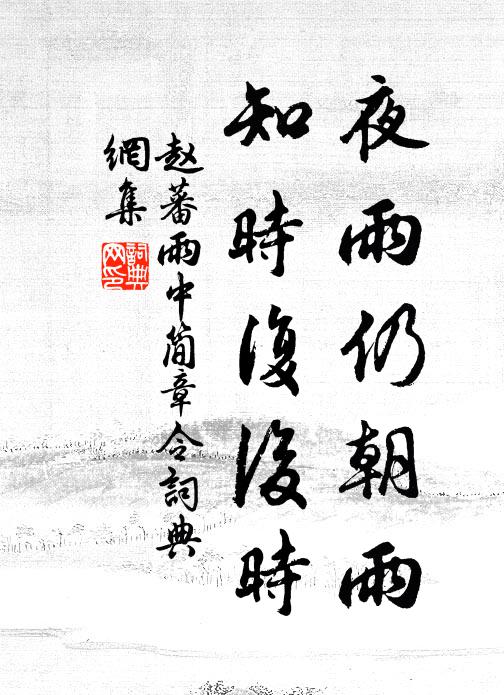 夜雨仍朝雨
知時復後時
赵蕃雨中简章令詞典
網集
詞典
网印